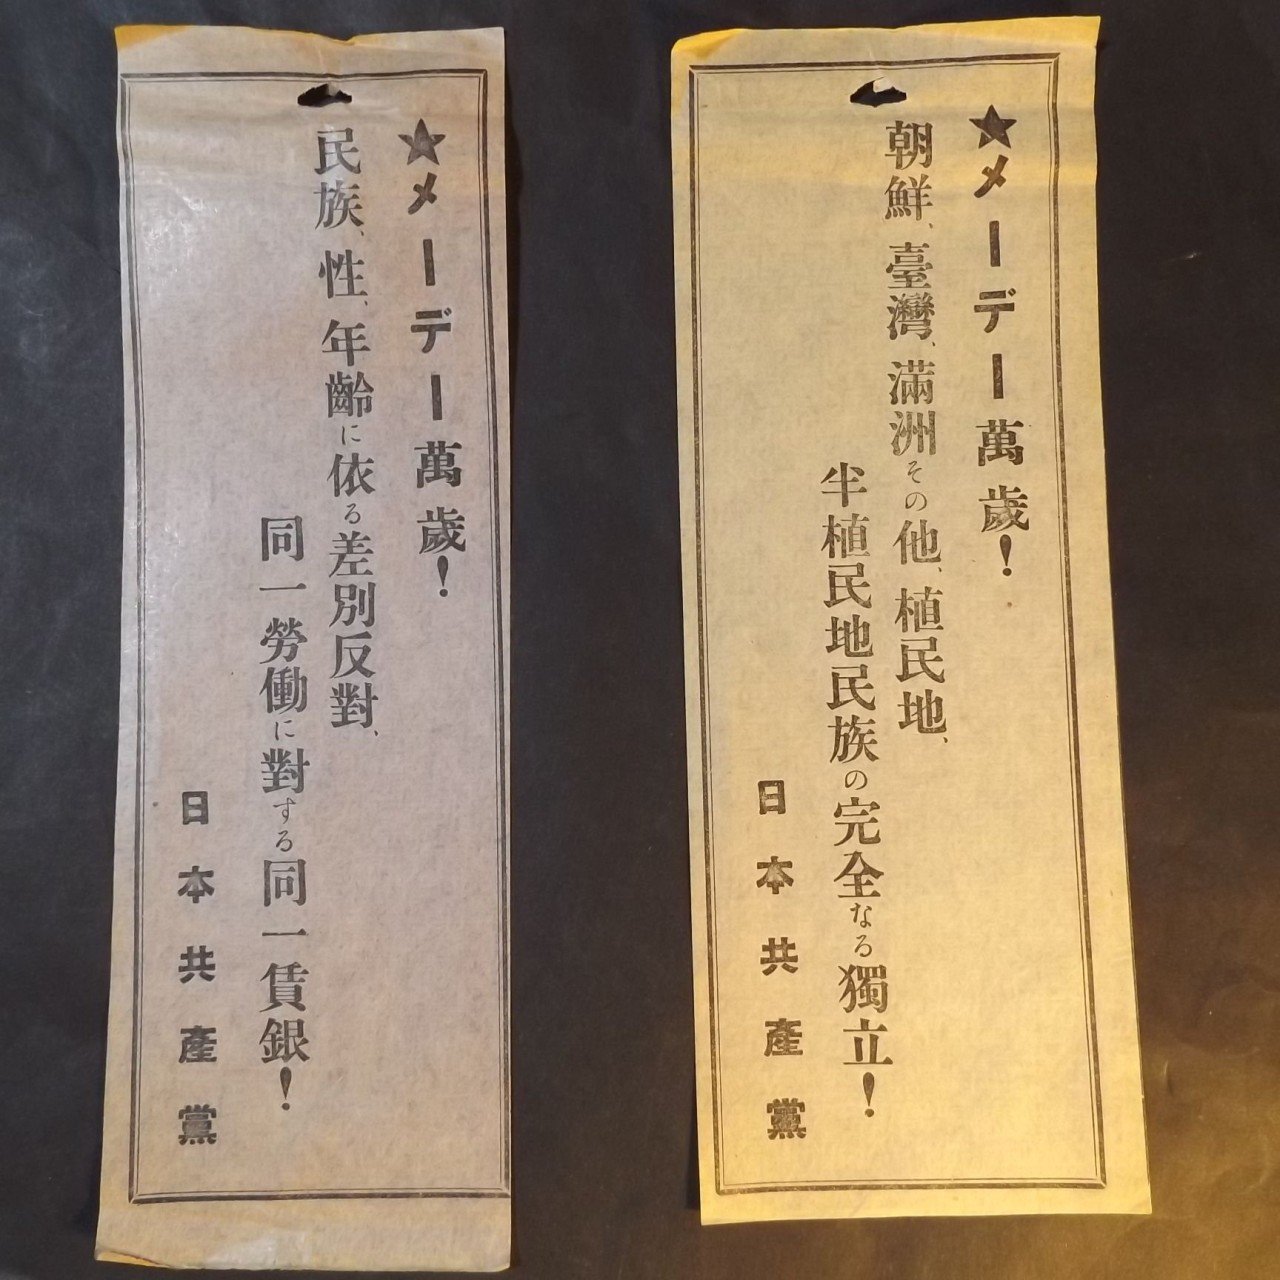 ★メーデー萬歲!
朝鮮、臺灣、滿洲その他、植民地、
半植民地民族の完全なる獨立!
日本共產黨
★メーデー萬歲!
民族、性、年齡に依る差別反對、
同一勞働に對する同一賃銀!
日本共產黨